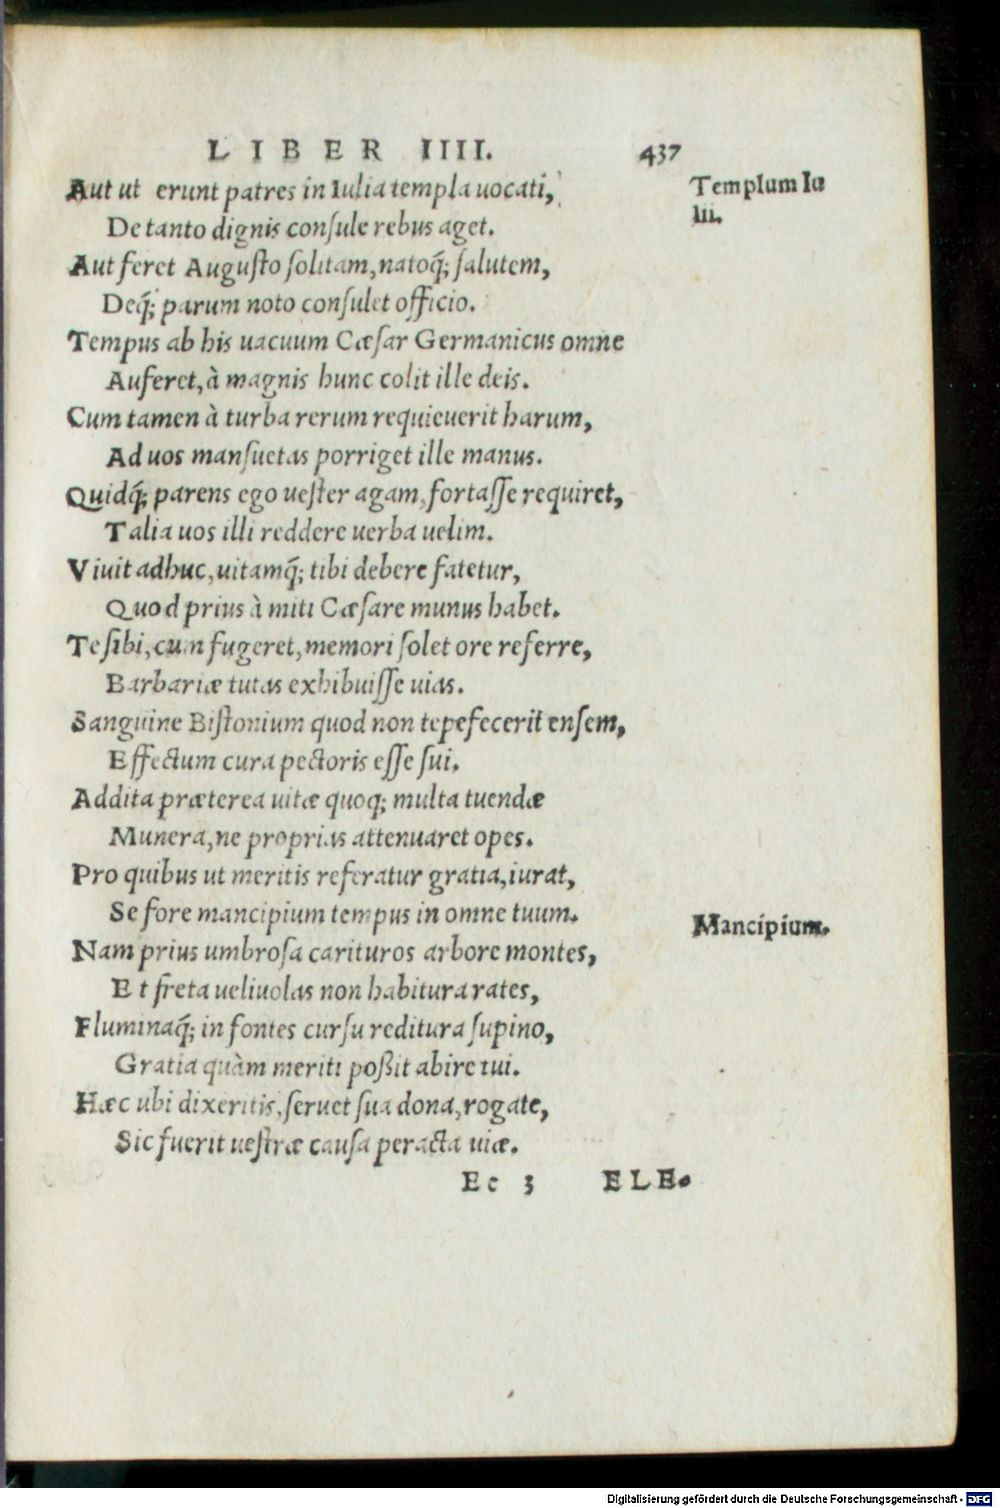 LIBER IIII. 437
Aut ut erunt patres in Iulia templa uocati,
Templum Iu
lii.
De tanto dignis consule rebus aget.
Aut feret Augusto solitam, natoq́; salutem,
Deq́; parum noto consulet officio.
Tempus ab his uacuum Cæsar Germanicus omne
Auferet, à magnis hunc colit ille deis.
Cum tamen à turba rerum requieuerit harum,
Ad uos mansuetas porriget ille manus.
Quidq́; parens ego uester agam, fortasse requiret,
Talia uos illi reddere uerba uelim.
Viuit adhuc, uitamq́; tibi debere fatetur,
Quod prius à miti Cæsare munus habet.
Te sibi, cum fugeret, memori solet ore referre,
Barbariæ tutas exhibuisse uias.
Sanguine Bistonium quod non tepefecerit ensem,
Effectum cura pectoris esse sui.
Addita præterea uitæ quoq; multa tuendæ
Munera, ne proprias attenuaret opes.
Pro quibus ut meritis referatur gratia, iurat,
Se fore mancipium tempus in omne tuum.
Mancipium.
Nam prius umbrosa carituros arbore montes,
Et freta ueliuolas non habitura rates,
Fluminaq́; in fontes cursu reditura supino,
Gratia quàm meriti poßit abire tui.
Hæc ubi dixeritis, seruet sua dona, rogate,
Sic fuerit uestræ causa peracta uiæ.
Ee 3 ELE.
Digitalisierung gefördert durch die Deutsche Forschungsgemeinschaft - DFG